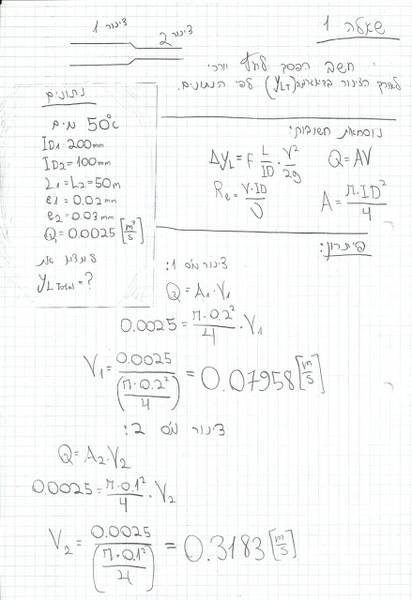 שאלה 1
צינור 1
צינור 2
חשב הפסד לחץ
לאורך הצינור (yLT) לפי הנתונים.
נתונים
מים 50°c
ID1=200mm
ID2=100mm
L1=L2=50m
e1=0.02mm
e2=0.03mm
Q=0.0025 [m³/s]
למצוא את
yL Total=?
נוסחאות חשובות:
ΔyL=f L/ID · V²/2g
Q=AV
Re=V·ID/ν
A=π·ID²/4
פיתרון:
צינור מס 1:
Q=A1·V1
0.0025=π·0.2²/4 · V1
V1=0.0025/(π·0.2²/4)=0.07958[m/s]
צינור מס 2:
Q=A2·V2
0.0025=π·0.1²/4 · V2
V2=0.0025/(π·0.1²/4)=0.3183[m/s]